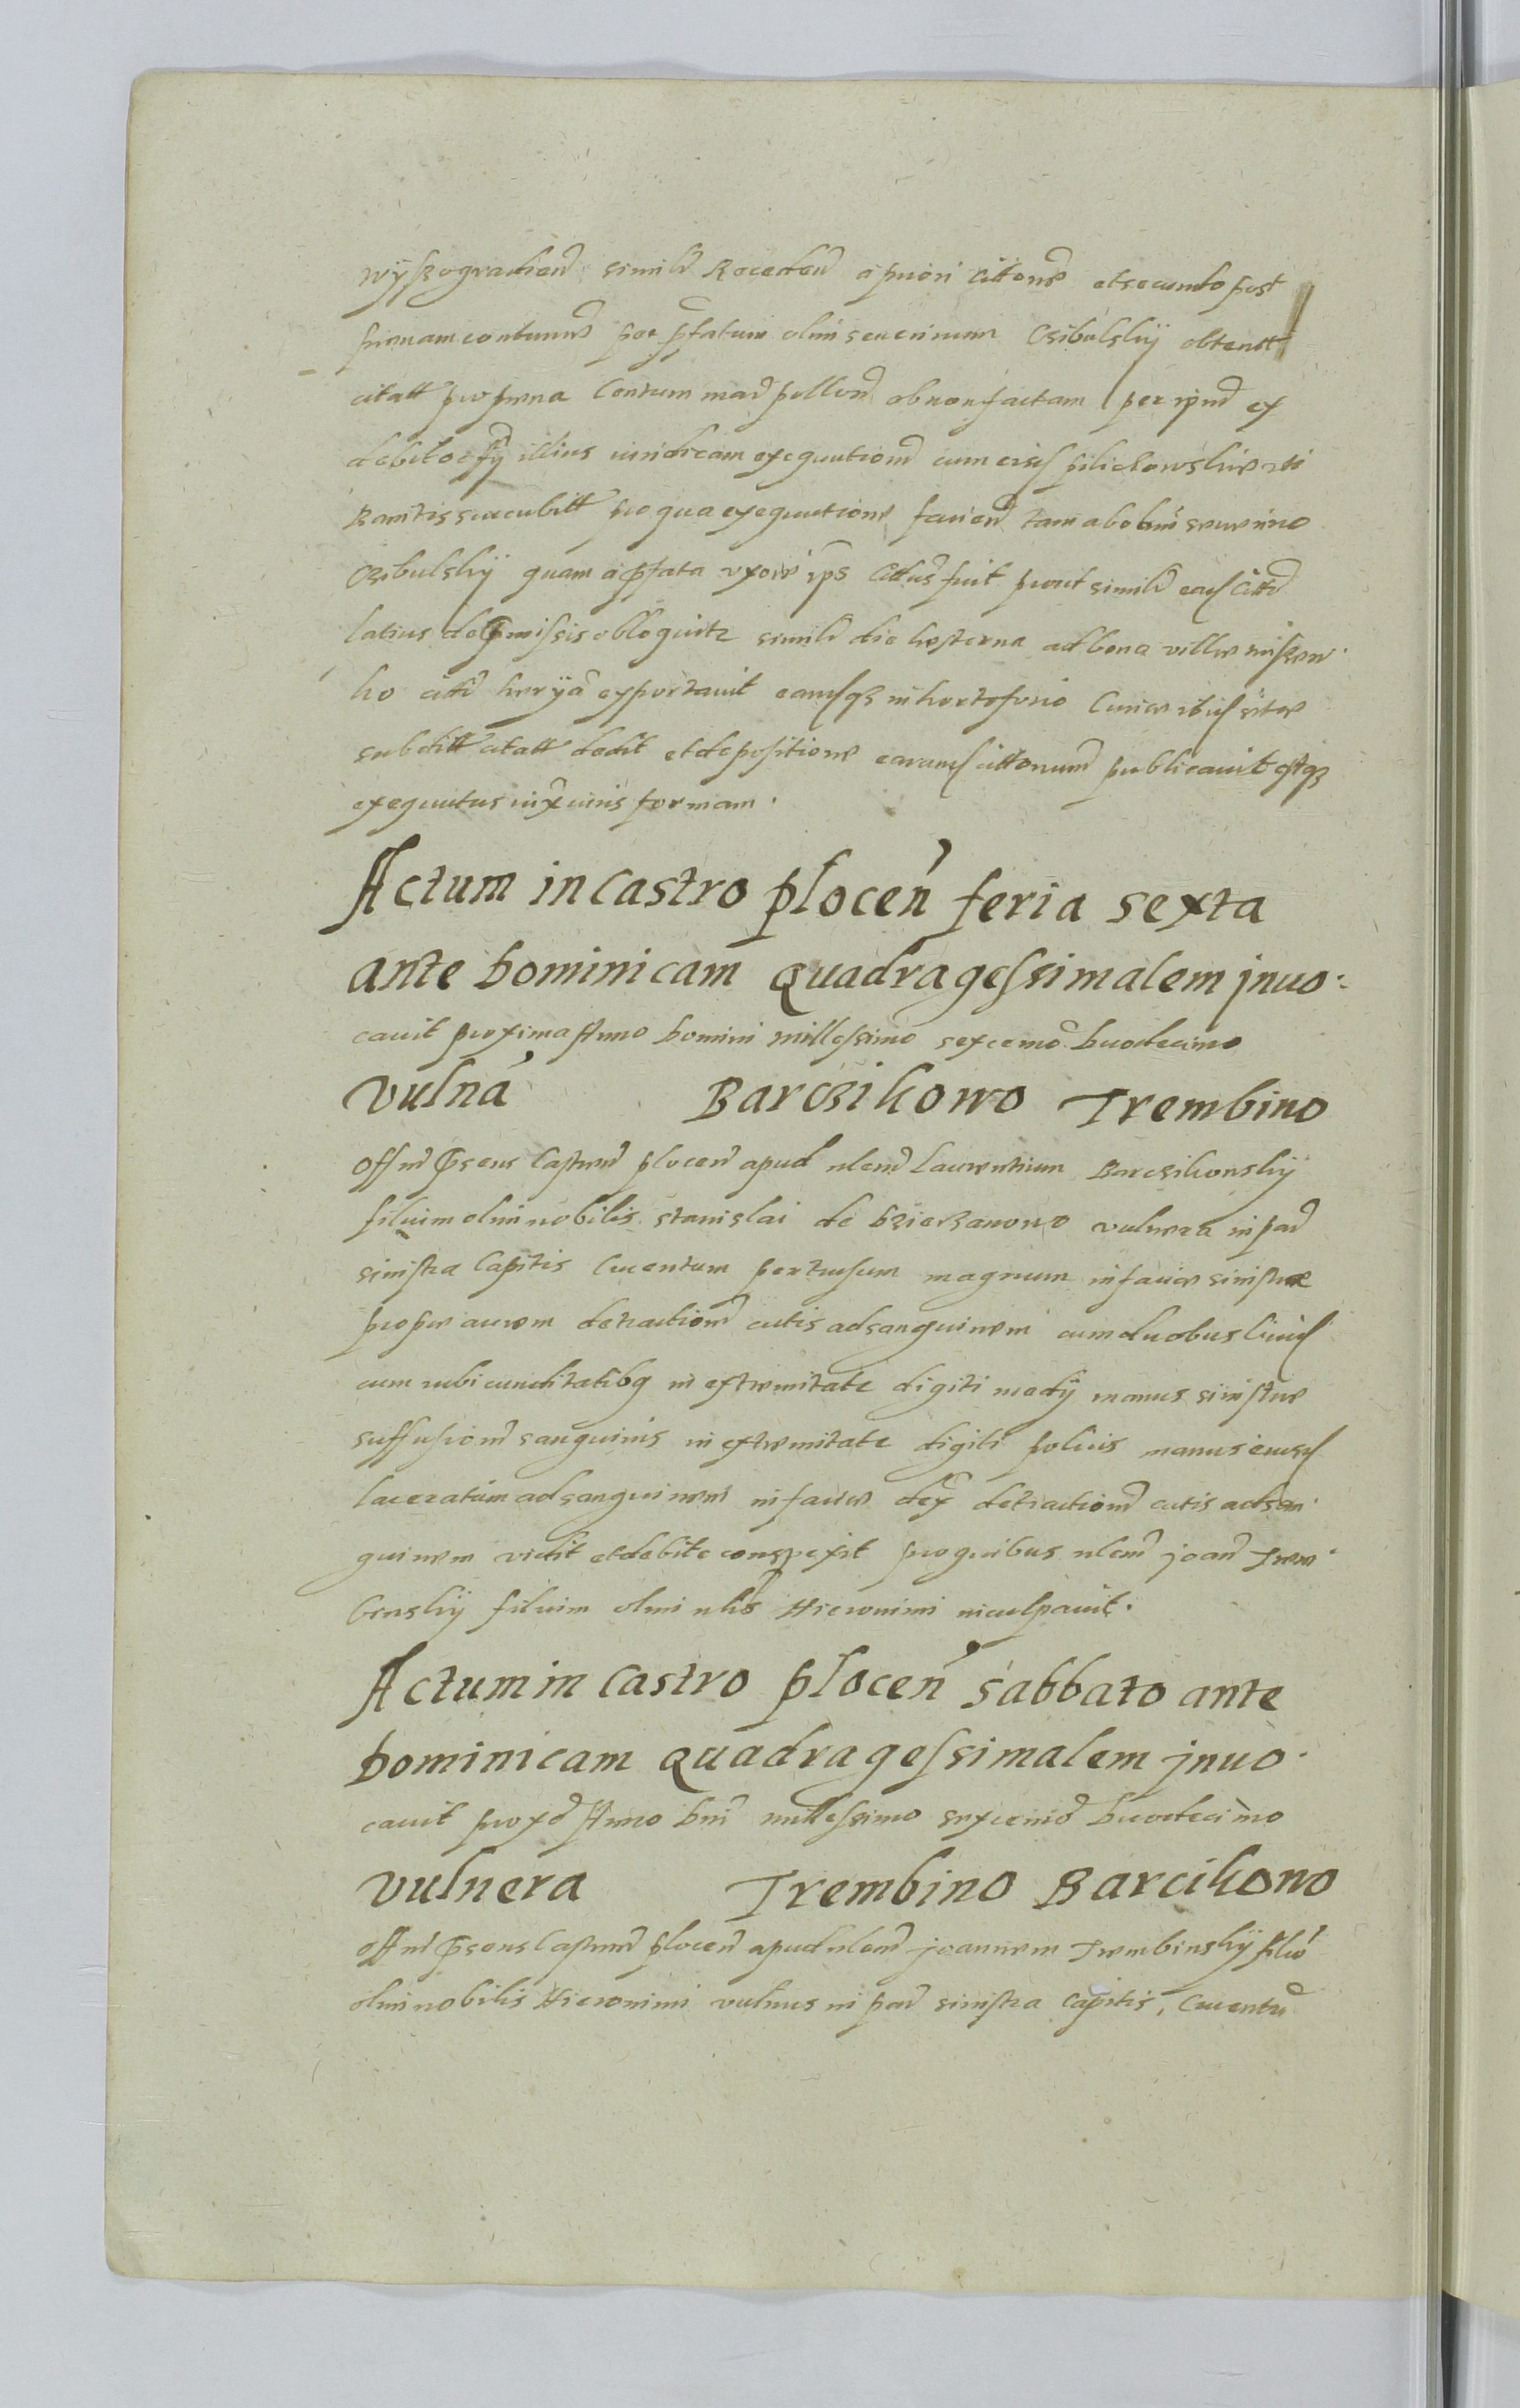 wyszogradien simil Receden a priori cittone et secundo post
primam contuma per pfatum olim seuerinum Csibulskij obtent
citatt pro pena Centum mar pollon ob non factam per ipm ex
debito offy illius iuridicam exequution cum eisd pilichowskie uti
Banitis succubitt pro qua exequutione facien tam ab olim seuerino
Czibulskij quam a pfata vxore ips cittus fuit prout simil eaed citt
latius de pmissis obloquutr simil die hesterna ad bona villae miszew
ko citt exportauit easdqz in hortoforio Curiae ibid sitae
subditt citatt dedit et de positione earund cittonum publicauit estqz
exequutus iux iuris formam.
Actum in castro plocen feria sexta
ante Dominicam Quadragessimalem jnuo:
cauit proxima Anno Domini millessimo sexcemo Duodecimo
vulna Barczikowo Trembino
Offm Psens Castren plocen apud nlem Laurentium Barczikowskij
filium olim nobilis stanislai de vulnera in par
sinistra Capitis Cruentum pertusum magnum in facie sinistra
prope aurem detraction cutis ad sanguinem cum duobus liuid
cum rubicunditatibq in extremitate digiti medij manus sinistrae
suffusionem sanguinis in extremitate digiti policis manus eiusd
laceratum ad sanguinem in facie dex detraction cutis ad san
guinem vidit et debite conspexit pro quibus nlem joan Trem
binskij filium olim nlis Hieronimi inculpauit.
Actum in castro plocen sabbato ante
Dominicam Quadragessimalem jnuo.
cauit prox Anno Dni millessimo sexcemo Duodecimo
vulnera Trembino Barcikowo
Offm Psens Castren plocen apud nlem joannem Trembinskij filiu
olim nobilis Hieronimi vulnus in par sinistra capitis, Cruentu